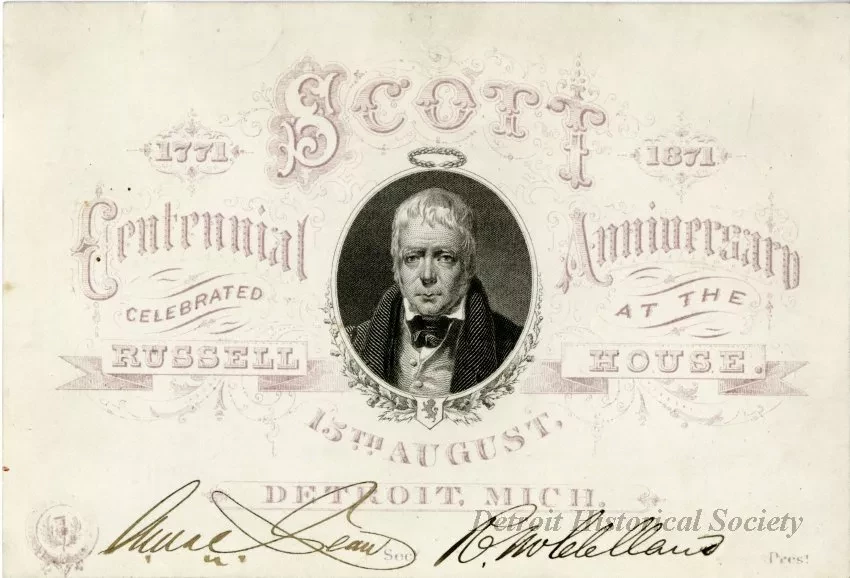 SCOTT
1771 1871
Centennial Anniversary
CELEBRATED AT THE
RUSSELL HOUSE.
15TH AUGUST,
DETROIT, MICH.
Detroit Historical Society
Sec
R. McClelland Prest